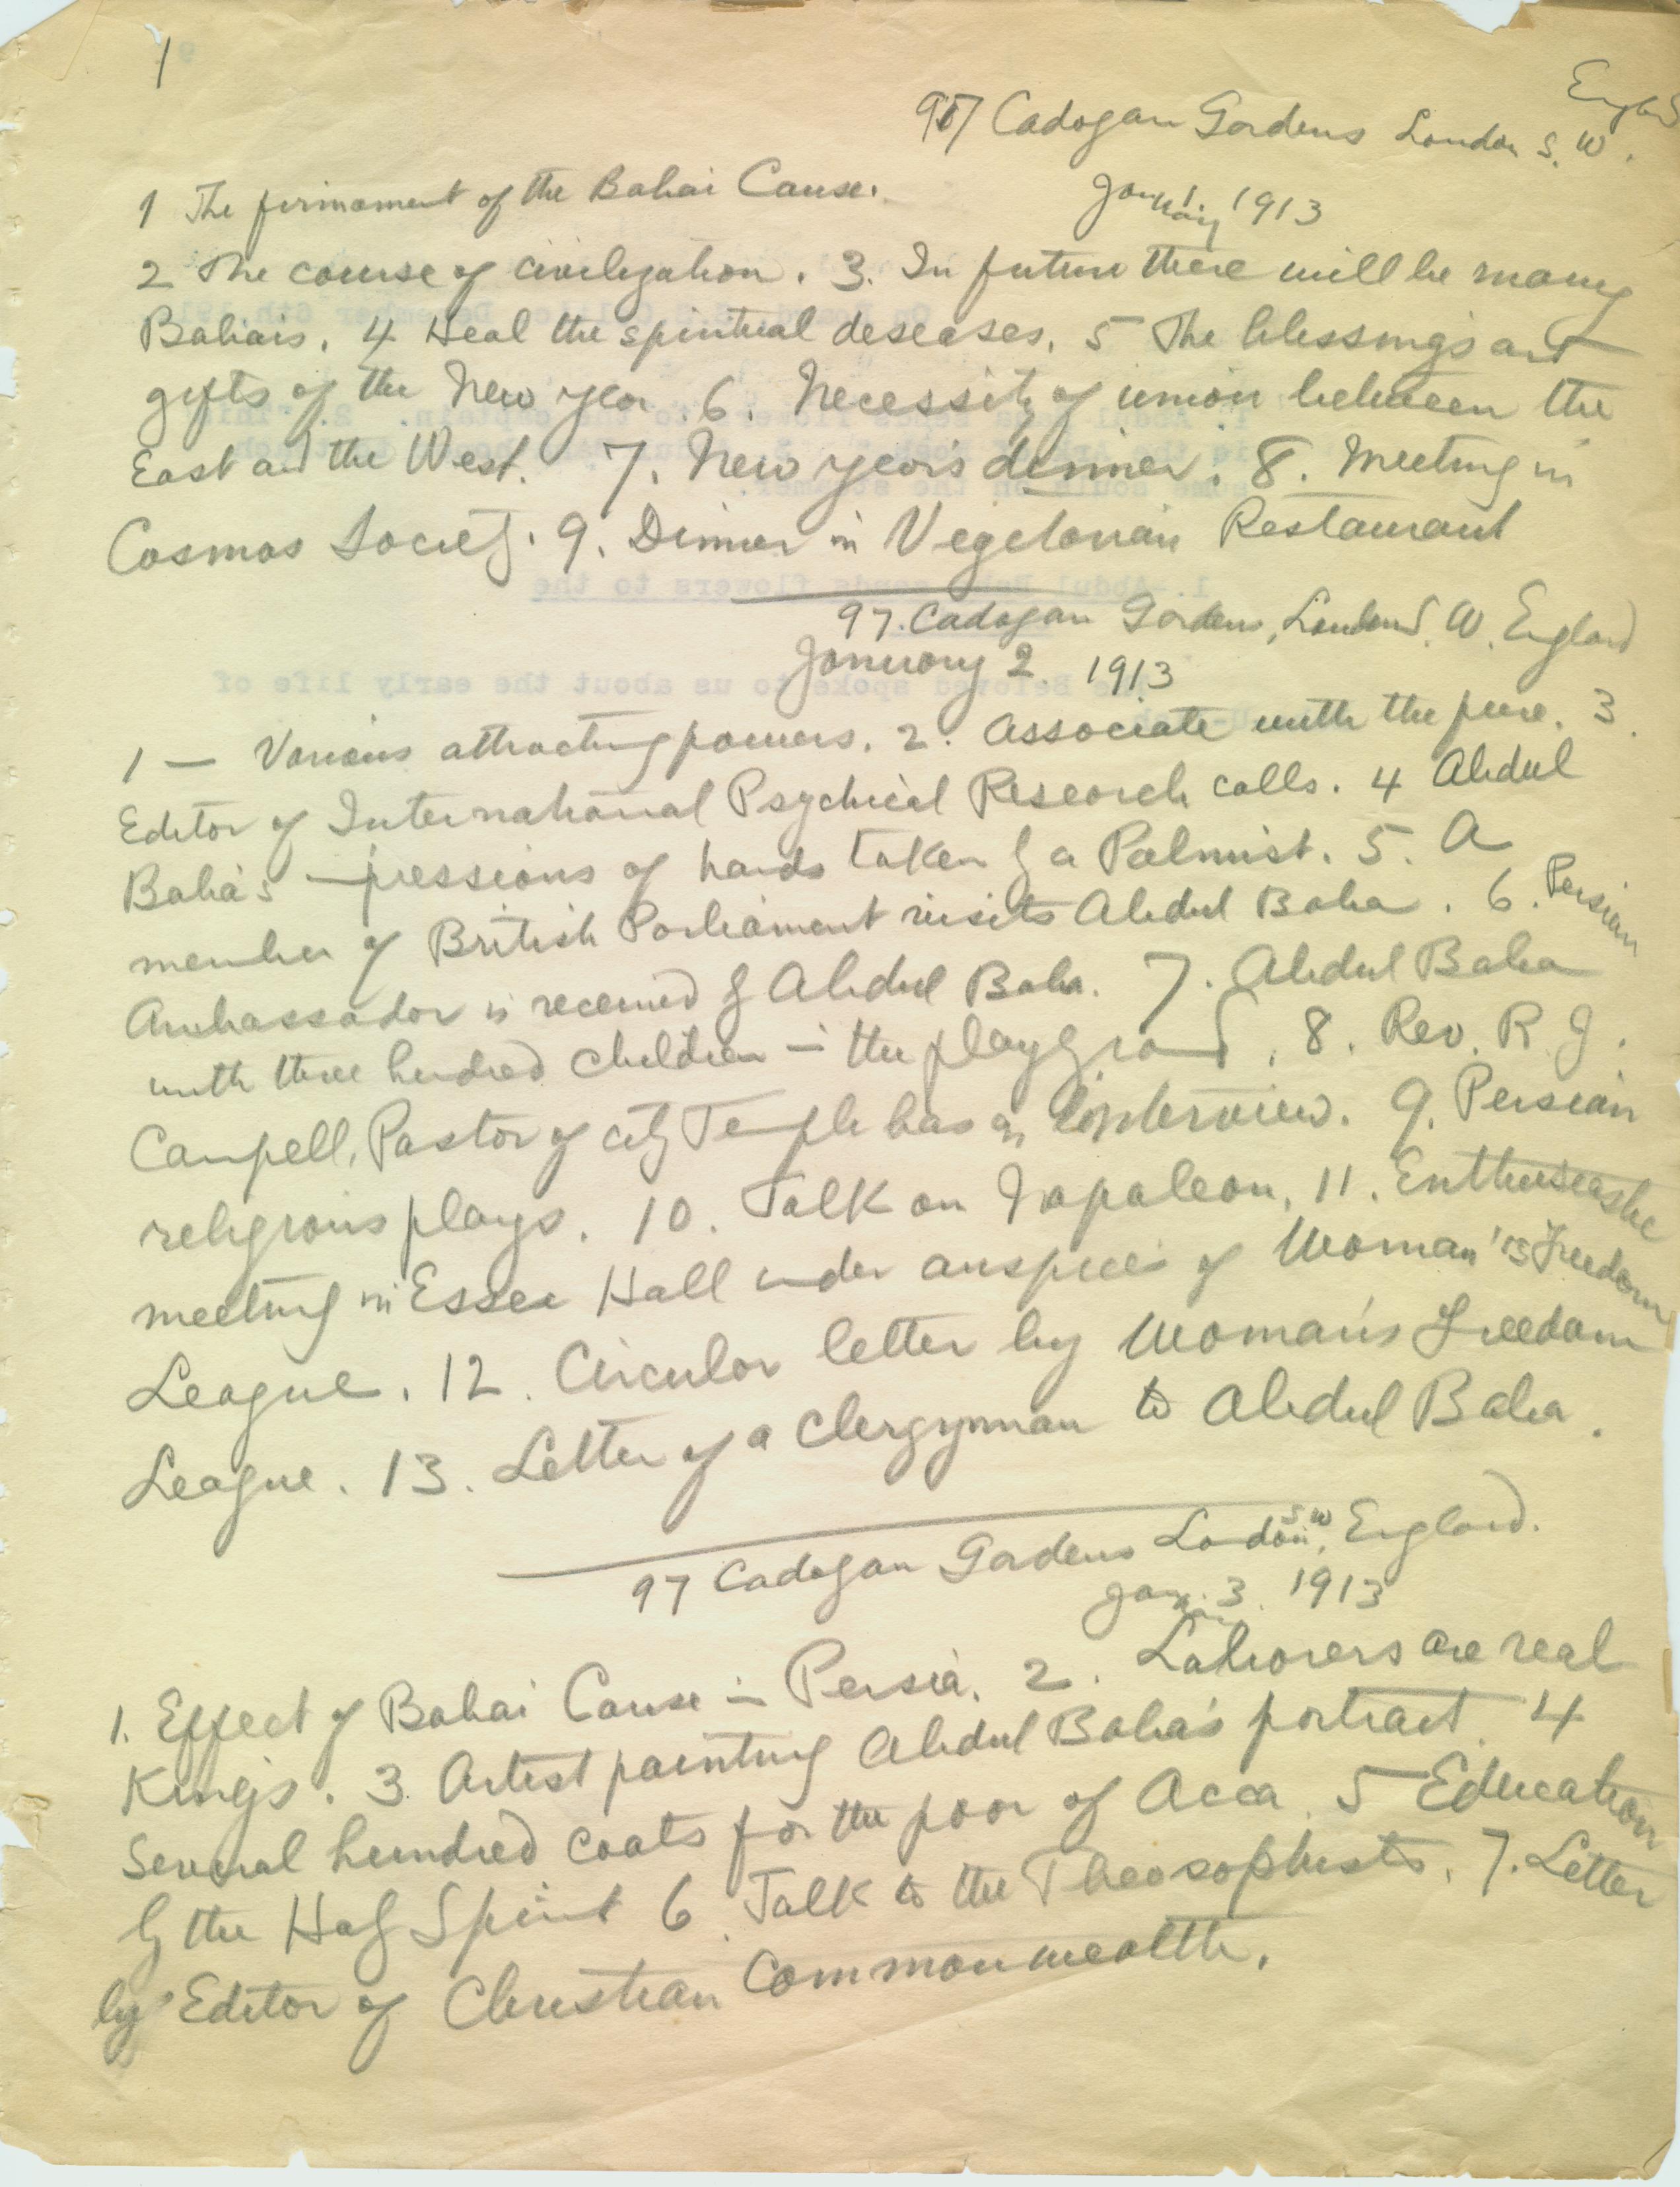 1
97 Cadogan Gardens London S. W. England
1 The firmament of the Bahai Cause.
January 1 1913
2 The course of civilization. 3. In future there will be many
Bahais. 4 Heal the spiritual deseases. 5 The blessings and
gifts of the New year. 6. Necessity of union between the
East and the West. 7. New year's dinner. 8. Meeting in
Cosmos Society. 9. Dinner in Vegetarian Restaurant
97. Cadogan Gardens, London S. W. England
January 2. 1913
1 — Various attracting powers. 2. Associate with the pure. 3.
Editor of International Psychical Research calls. 4 Abdul
Baha's impressions of hands taken by a Palmist. 5. A
member of British Parliament visits Abdul Baha. 6. Persian
Ambassador is received by Abdul Baha. 7. Abdul Baha
with three hundred children in the playground. 8. Rev. R. J.
Campell, Pastor of city Temple has an interview. 9. Persian
religious plays. 10. Talk on Napoleon. 11. Enthusiastic
meeting in Essex Hall under auspices of Woman's Freedom
League. 12. Circular letter by Woman's Freedom
League. 13. Letter of a Clergyman to Abdul Baha.
97 Cadogan Gardens London, S W England.
Jan. 3. 1913
1. Effect of Bahai Cause in Persia. 2. Laborers are real
Kings. 3. Artist painting Abdul Baha's portrait. 4
Several hundred coats for the poor of Acca. 5 Education
by the Holy Spirit 6. Talk to the Theosophists. 7. Letter
by Editor of Christian Commonwealth.